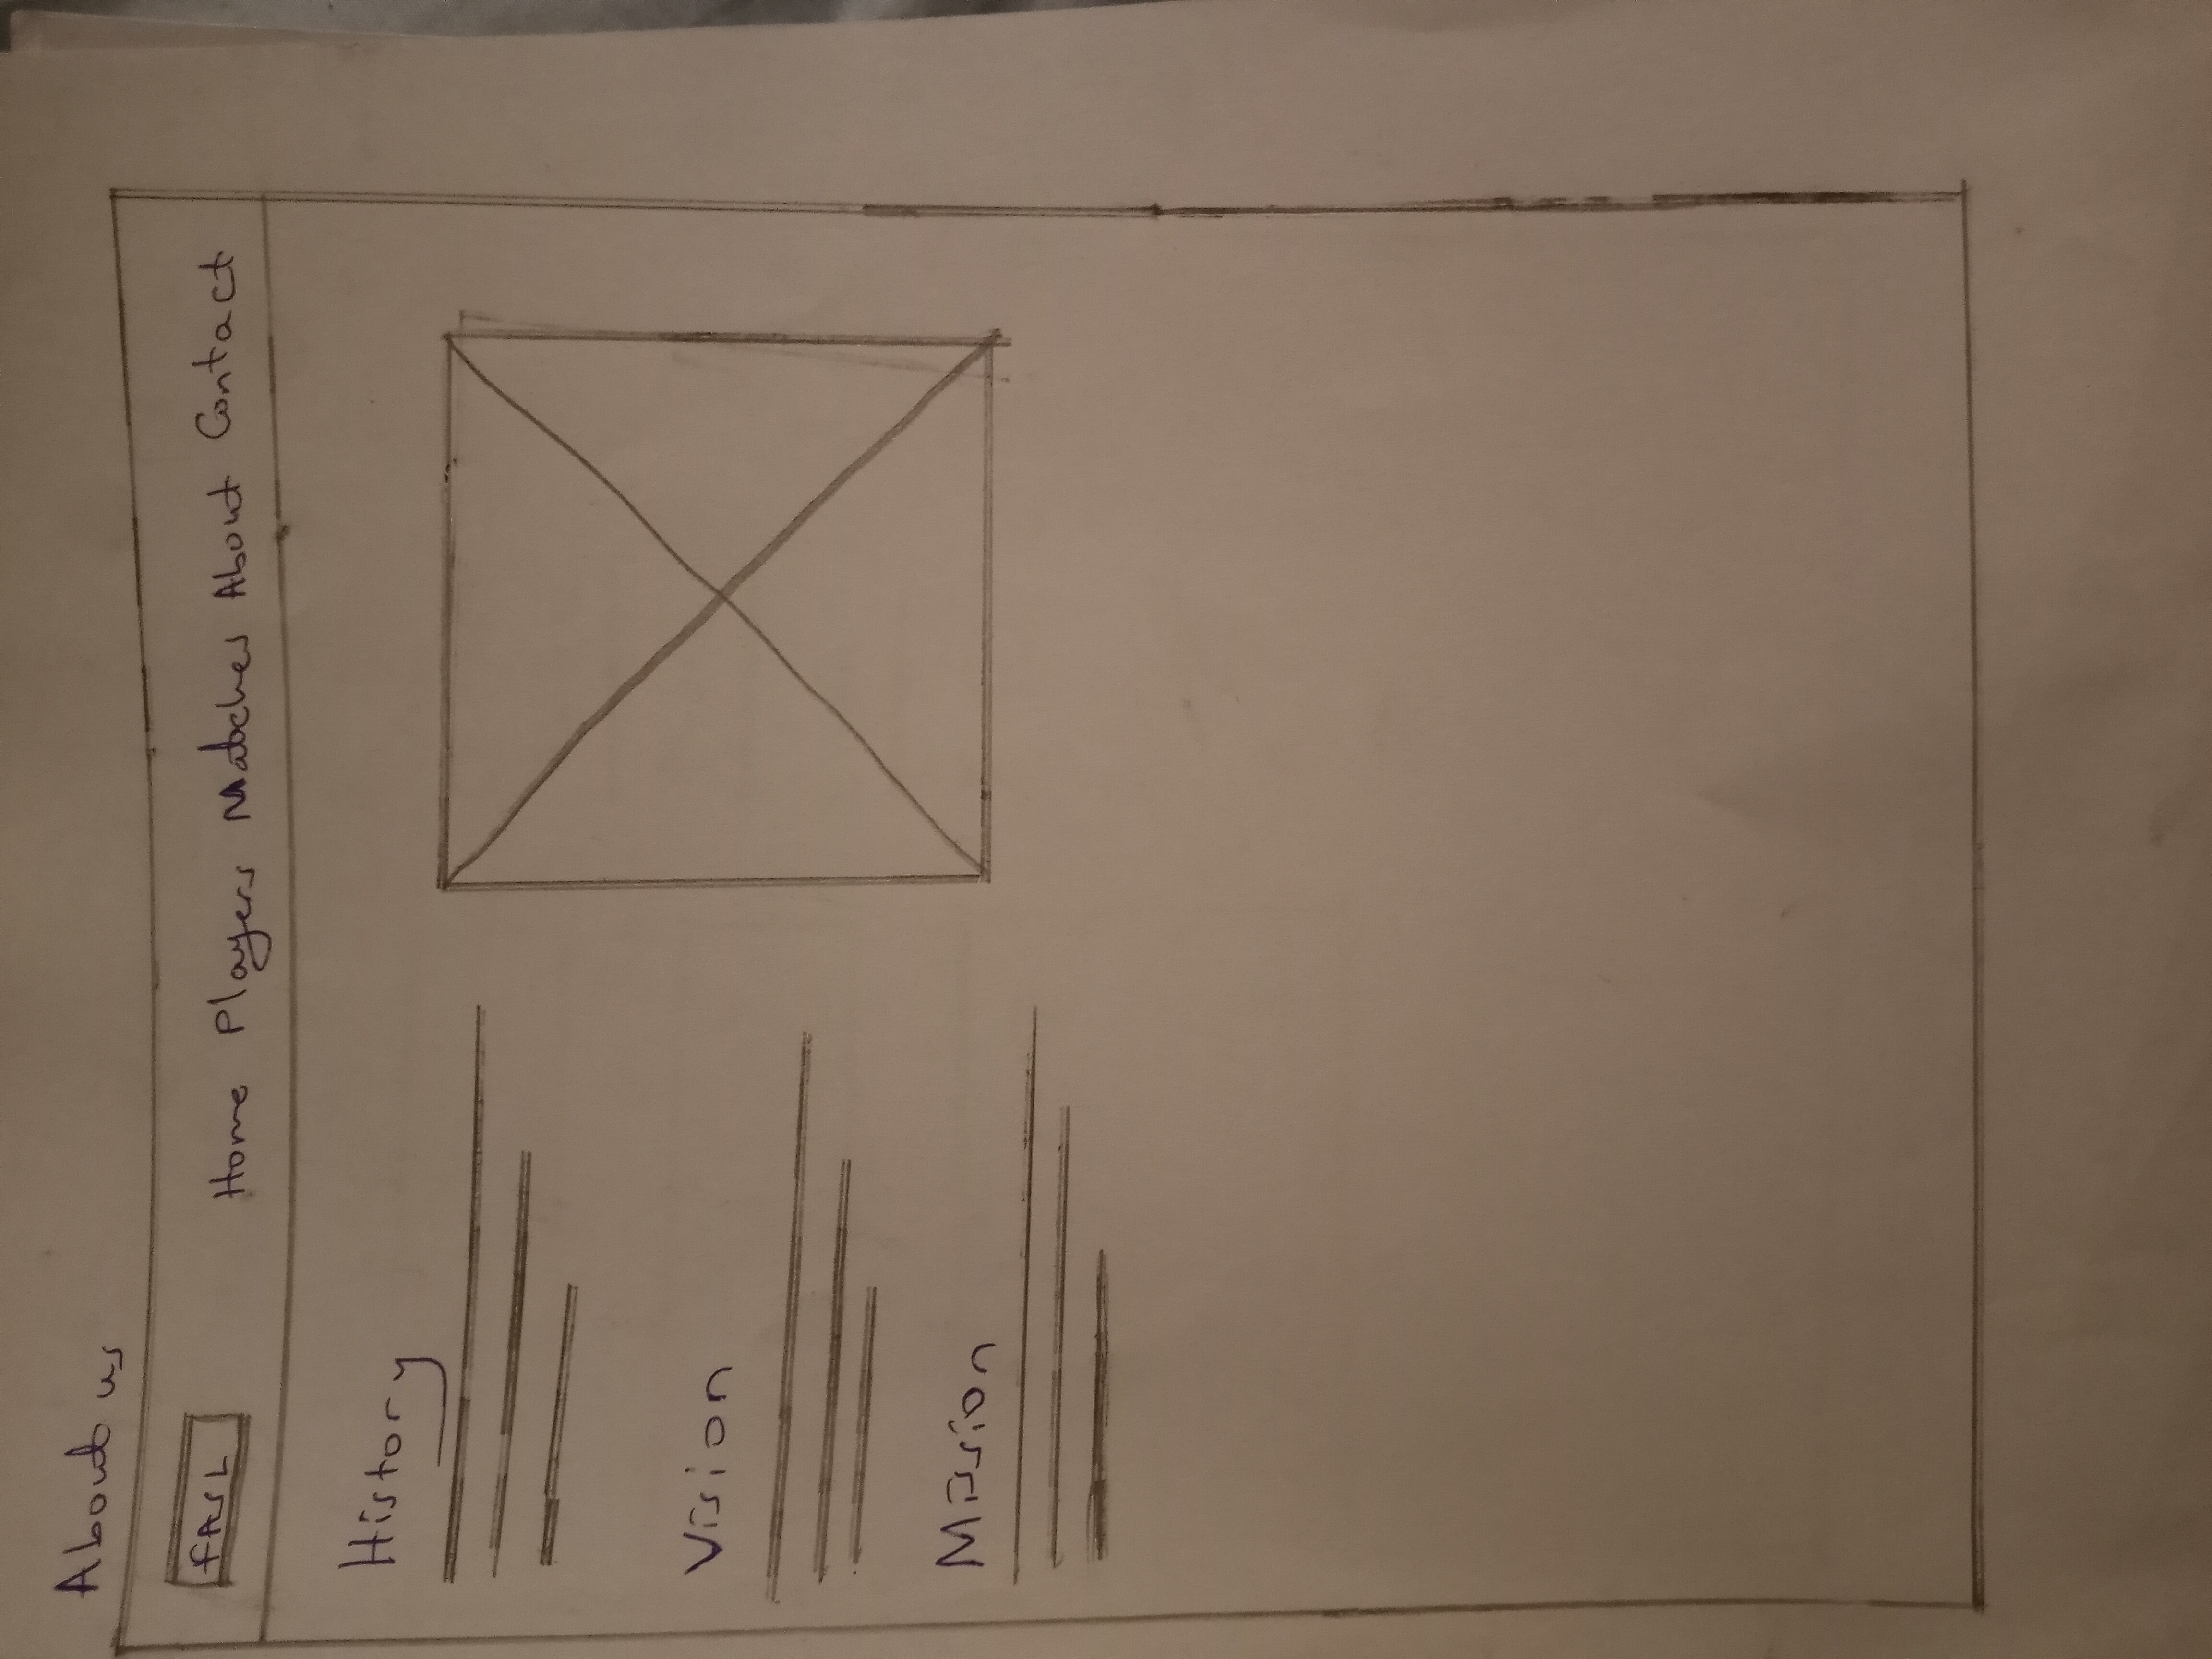 About us
FASL
Home Players Matches About Contact
History
Vision
Mission